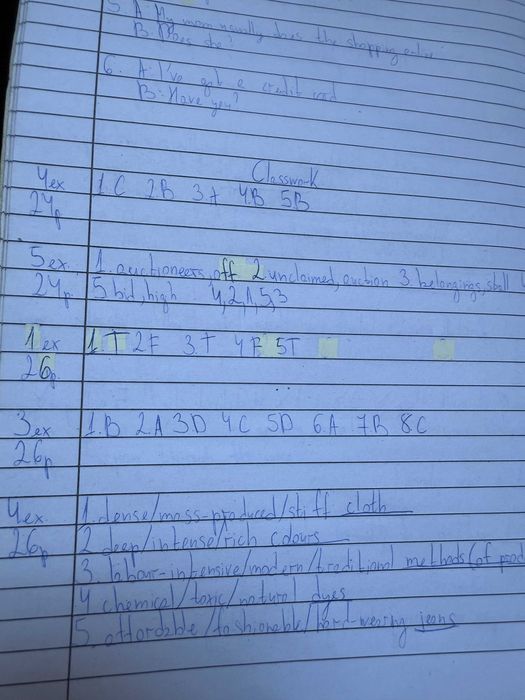 5. A: My mom usually does the shopping
B: Does she?
6. A: I've got a credit card
B: Have you?
Classwork
4ex 1.C 2.B 3.A 4.B 5B
24p
5ex 1. auctioneers, off 2. unclaimed, auction 3. belongings, stall 4
24p 5 bid, high 4,2,1,5,3
1ex 1.T 2F 3.T 4F 5T
26p.
3ex 1.B 2.A 3D 4.C 5D 6.A 7.B 8.C
26p
4ex 1. dense/mass-produced/stiff cloth
26p 2. deep/intense/rich colours
3. labour-intensive/modern/traditional methods (of prod
4. chemical/toxic/natural dyes
5. affordable/fashionable/hard-wearing jeans